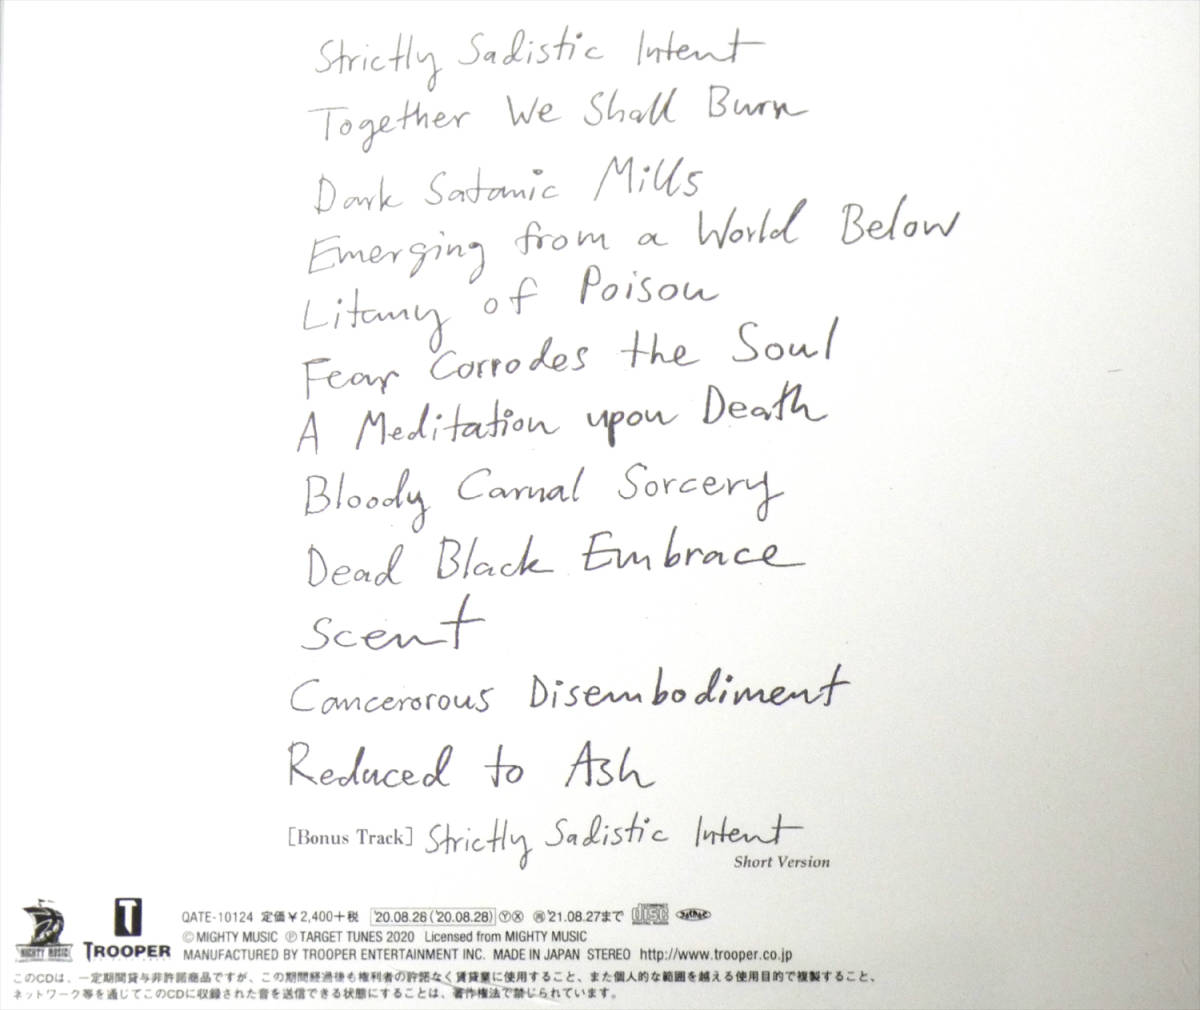 Strictly Sadistic Intent
Together We Shall Burn
Dark Satanic Mills
Emerging from a World Below
Litany of Poison
Fear Corrodes the Soul
A Meditation upon Death
Bloody Carnal Sorcery
Dead Black Embrace
Scent
Cancerorous Disembodiment
Reduced to Ash
[Bonus Track] Strictly Sadistic Intent
Short Version
MIGHTY MUSIC
T
TROOPER
QATE-10124 定価¥2,400+税 '20.08.28('20.08.28) Ⓨ Ⓧ '21.08.27まで disc
©MIGHTY MUSIC ℗TARGET TUNES 2020 Licensed from MIGHTY MUSIC
MANUFACTURED BY TROOPER ENTERTAINMENT INC. MADE IN JAPAN STEREO http://www.trooper.co.jp
このCDは、一定期間貸与非許諾商品ですが、この期間経過後も権利者の許諾なく賃貸業に使用すること、また個人的な範囲を越える使用目的で複製すること、
ネットワーク等を通じてこのCDに収録された音を送信できる状態にすることは、著作権法で禁じられています。